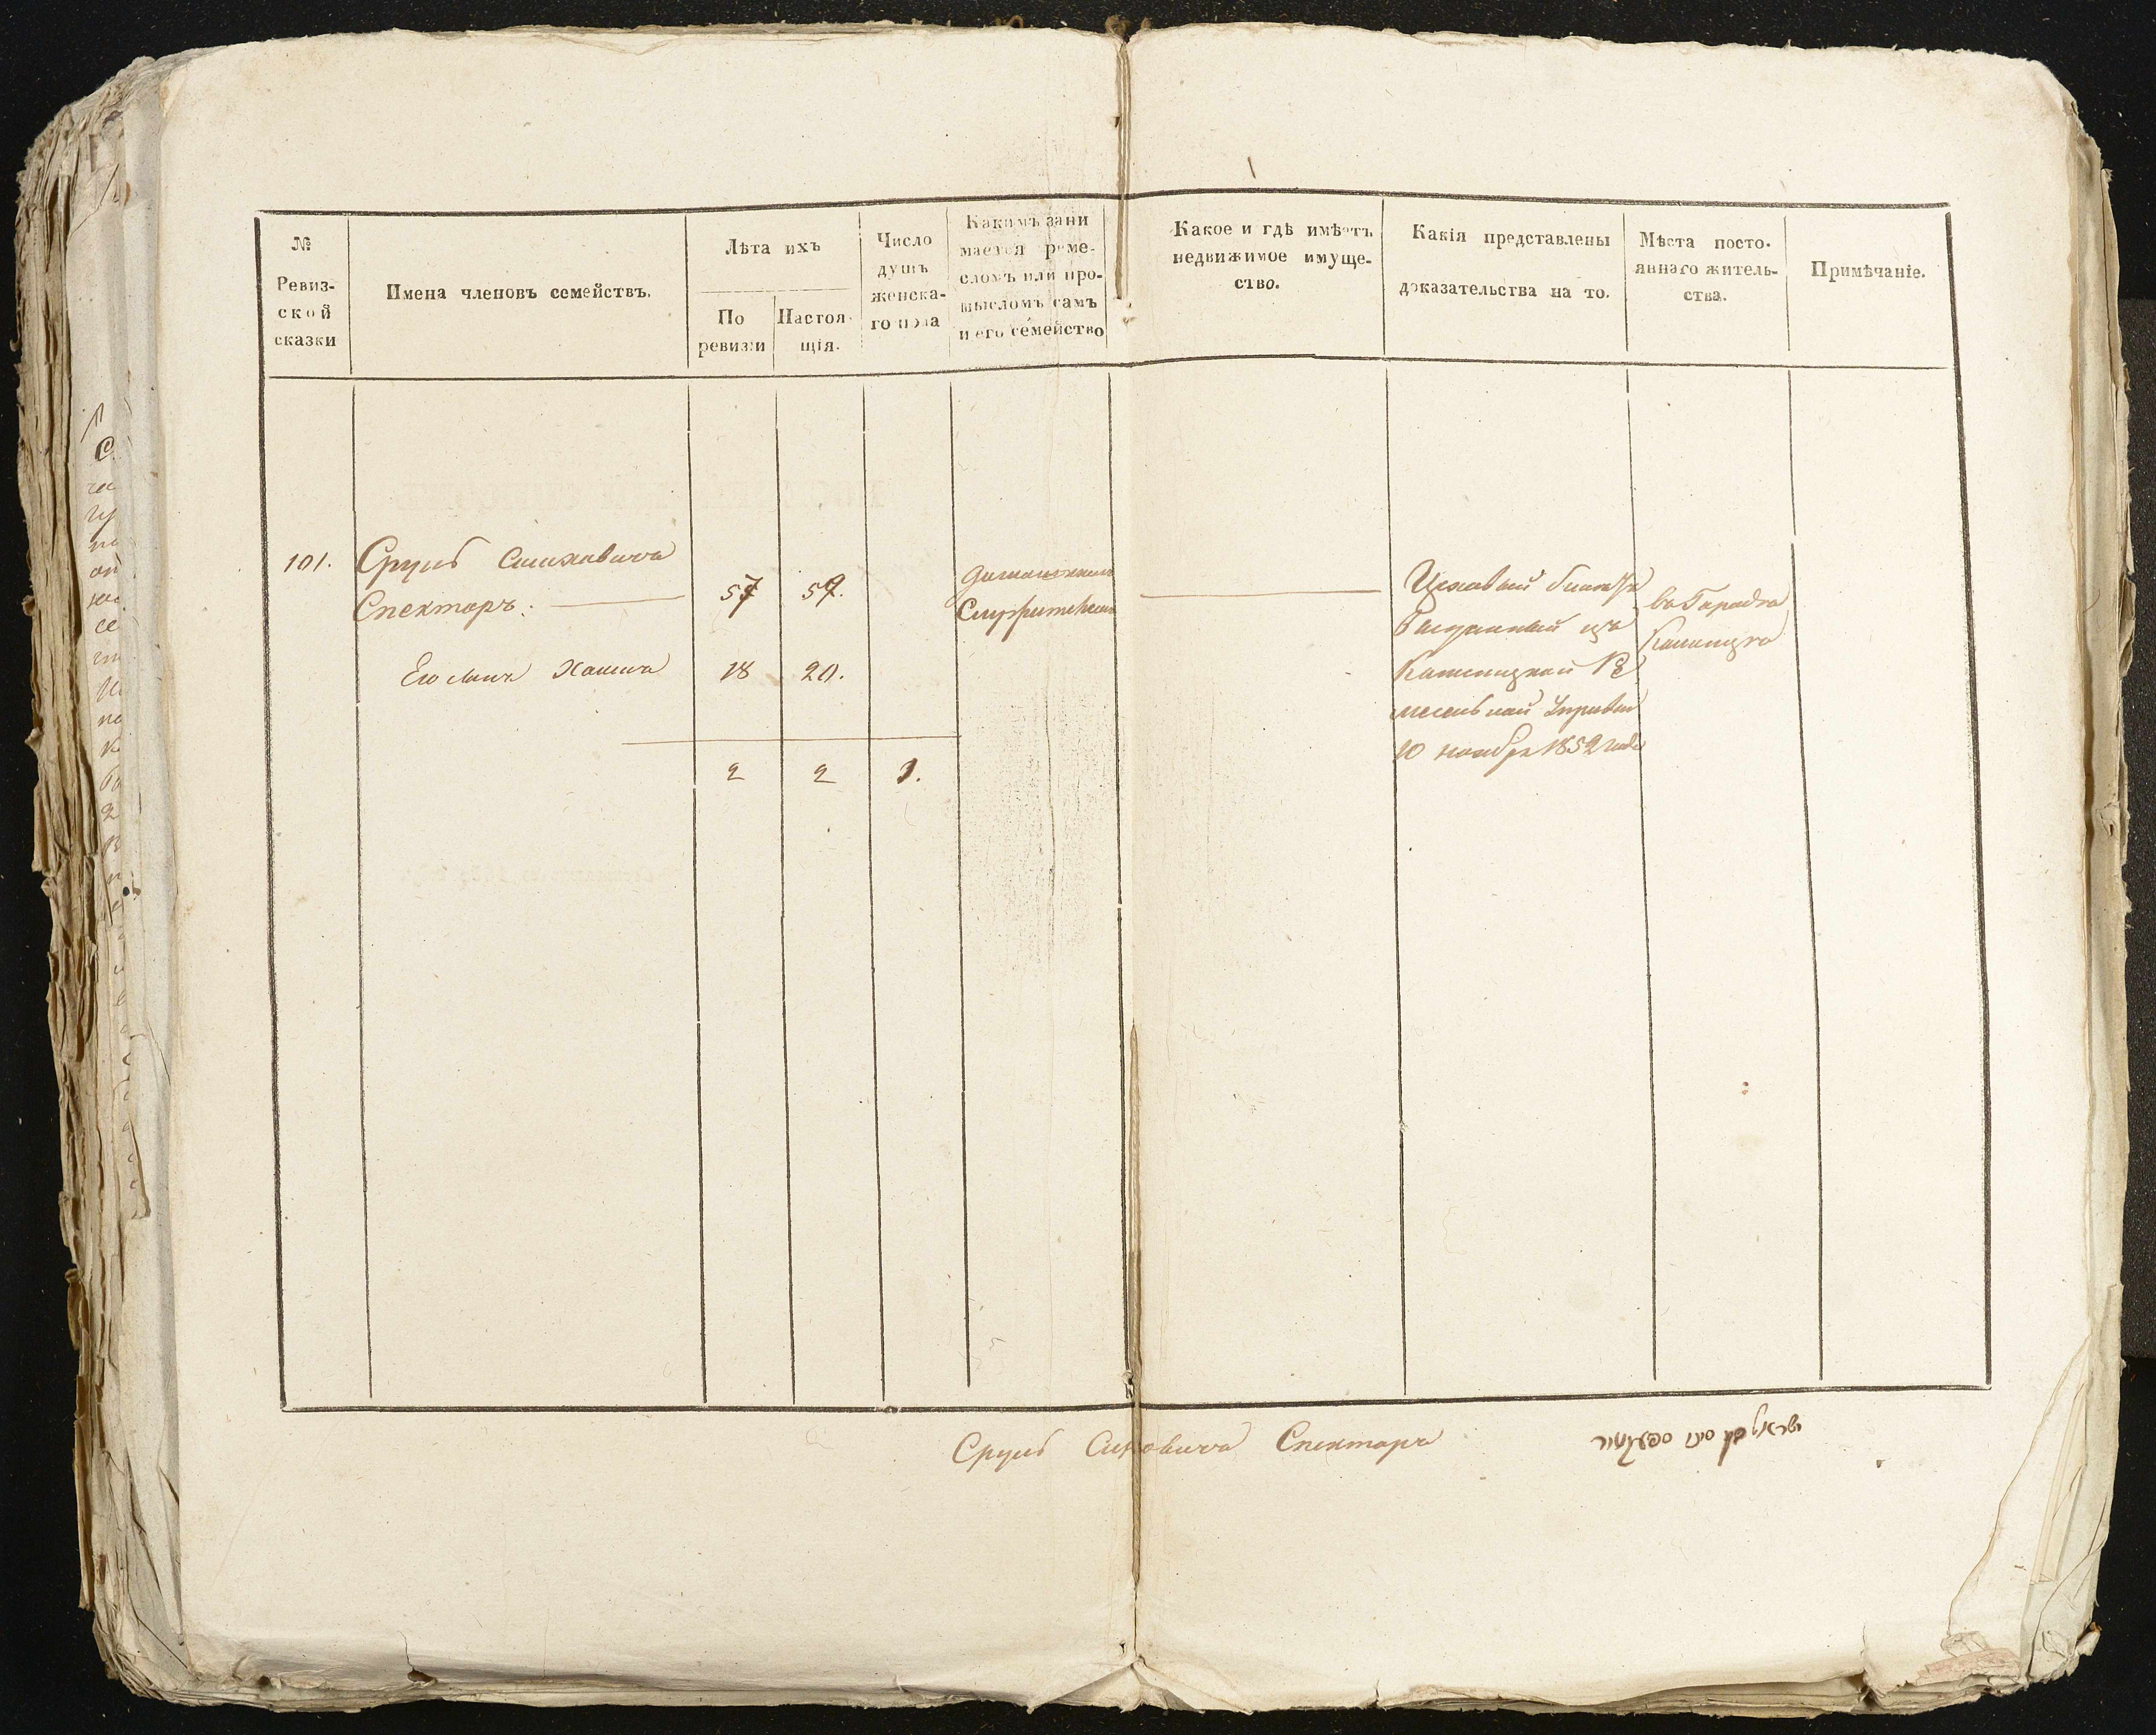 №
Ревиз-
ской
сказки
Имена членовъ семействъ.
Лѣта ихъ
По
ревизіи
Настоя-
щія.
Число
душъ
женска-
го пола
Какимъ зани
мается реме-
сломъ или про-
мысломъ самъ
и его семейство
Какое и гдѣ имѣетъ
недвижимое имуще-
ство.
Какія представлены
доказательства на то.
Мѣста посто-
яннаго житель-
ства.
Примѣчаніе.
101.
Сруль
Спекторъ.
57
59.
Его сынъ Хаимъ
18
20.
2
2
1.
Цеховый
выданный изъ
Каменецкой Ре
месленой Управы
10 ноября 1852 года
въ Городѣ
Каменцѣ
Сруль Сиховичъ Спекторъ